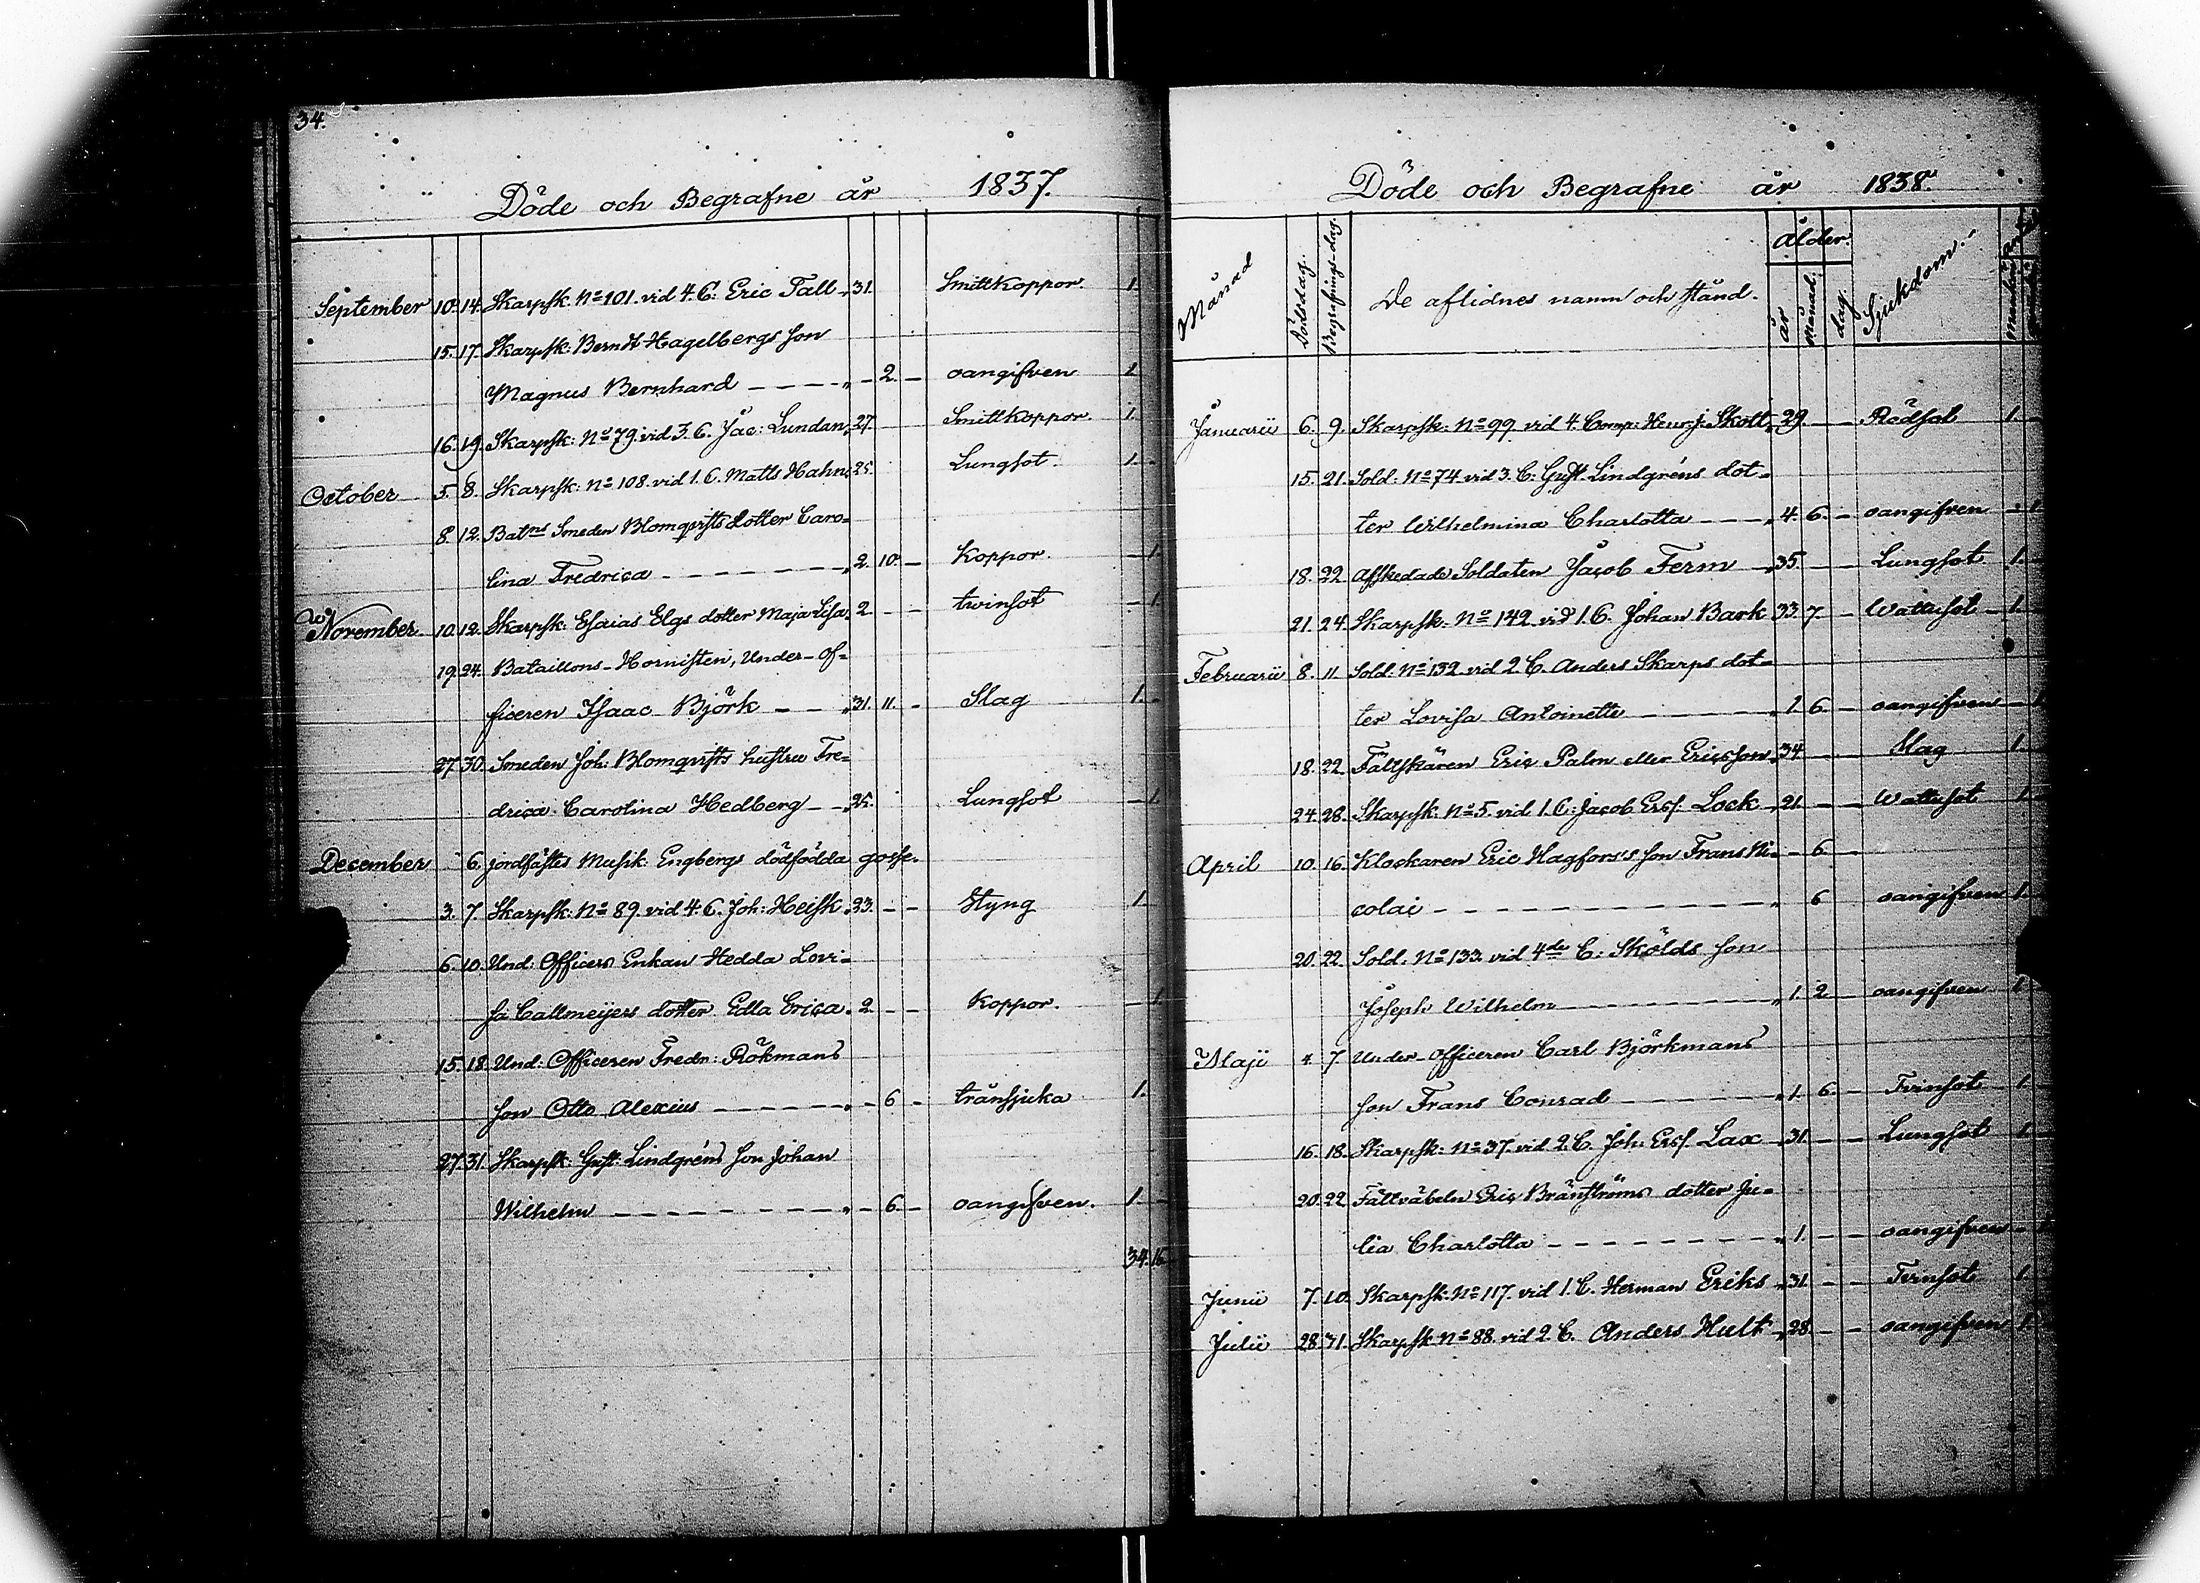 34.
Döde och Begrafne år 1837.
September 10. 14. Skarpsk. No 101. vid 4. C. Eric Tall 31. Smittkoppor. 1.
15. 17. Skarpsk: Berndt Hagelbergs son
Magnus Bernhard - - - - „ - 2. - oangifven 1
16. 19. Skarpsk: No 79. vid 3. C. Jac: Lundan 27. Smittkoppor. 1.
October 5. 8. Skarpsk: No 108. vid 1. C. Matts Hahn 25. Lungsot. 1. -
8. 12. Batns Smeden Blomqvists dotter Caro=
lina Fredrica - - - - - - „ 2. 10. - Koppor. - 1.
November 10. 12. Skarpsk: Esaias Elgs dotter Maja Lisa 2. - - twinsot - 1.
19. 24. Bataillons-Hornisten, Under-of=
ficeren Isaac Björk - - - „ 31. 11. - Slag 1. -
27. 30. Smeden Joh: Blomqvists hustru Fre=
drica Carolina Hedberg - - 25. Lungsot - 1.
December 6. jordfästes Musik: Engbergs dödfödda gosse.
3. 7. Skarpsk: No 89. vid 4. C. Joh: Heisk 23. - - Styng 1
6. 10. Und: Officers Enkan Hedda Lovi=
sa Callmeijers dotter Edla Erica 2. - - Koppor. - 1
15. 18. Und: Officeren Fredr: Rökmans
son Otto Alexius - - - - - „ - 6 - tränsjuka 1.
27. 31. Skarpsk: Gust: Lindgréns son Johan
Wilhelm - - - - - - - - „ - 6. - oangifven. 1. -
34. 16
Döde och Begrafne år 1838.
Månad Dödsdag. Begrafnings-dag. De aflidnes namn och stånd. Ålder. år månad. dag. Sjukdom. Mankön
Januarii 6. 9. Skarpsk: No 99. vid 4. Comp: Henr: J: Skott 29. - - Rödsot 1. -
15. 21. Sold: No 74 vid 3. C: Gust. Lindgréns dot=
ter Wilhelmina Charlotta - - - „ 4. 6. - oangifven - 1
18. 22. Afskedade Soldaten Jacob Ferm 35. - - Lungsot 1. -
21. 24. Skarpsk: No 142 vid 1. C. Johan Bark 33. 7. - Wattusot 1. -
Februarii 8. 11 Sold: No 132 vid 2. C. Anders Skarps dot=
ter Lovisa Antoinette - - - „ 1. 6. - oangifven - 1
18. 22. Fältskären Eric Palm eller Ericsson 34 - - Slag 1. -
24. 28. Skarpsk: No 5. vid 1. C: Jacob Ersf. Lock 21. - - Wattusot 1. -
April 10. 16. Klockaren Eric Hagfors's son Frans Ni= - 6. -
colai - - - - - - - - „ 6 oangifven 1. -
20. 22. Sold: No 133. vid 4de C: Skölds son
Joseph Wilhelm - - - - - „ 1. 2. oangifven 1
Maji 4. 7. Under-officeren Carl Björkmans
son Frans Conrad - - - - „ 1. 6. - Tvinsot 1. -
16. 18. Skarpsk: No 37. vid 2. C. Joh: Ersf. Lax 31. - - Lungsot 1. -
20. 22 Fältväbeln Eric Bränströms dotter Ju=
lia Charlotta - - - - - - „ 1. - - oangifven - 1
Junii 7. 10. Skarpsk: No 117. vid 1. C. Herman Eriks 31. - - Tvinsot 1. -
Julii 28. 31. Skarpsk: No 88. vid 2. C. Anders Hult 28. - - oangifven 1. -